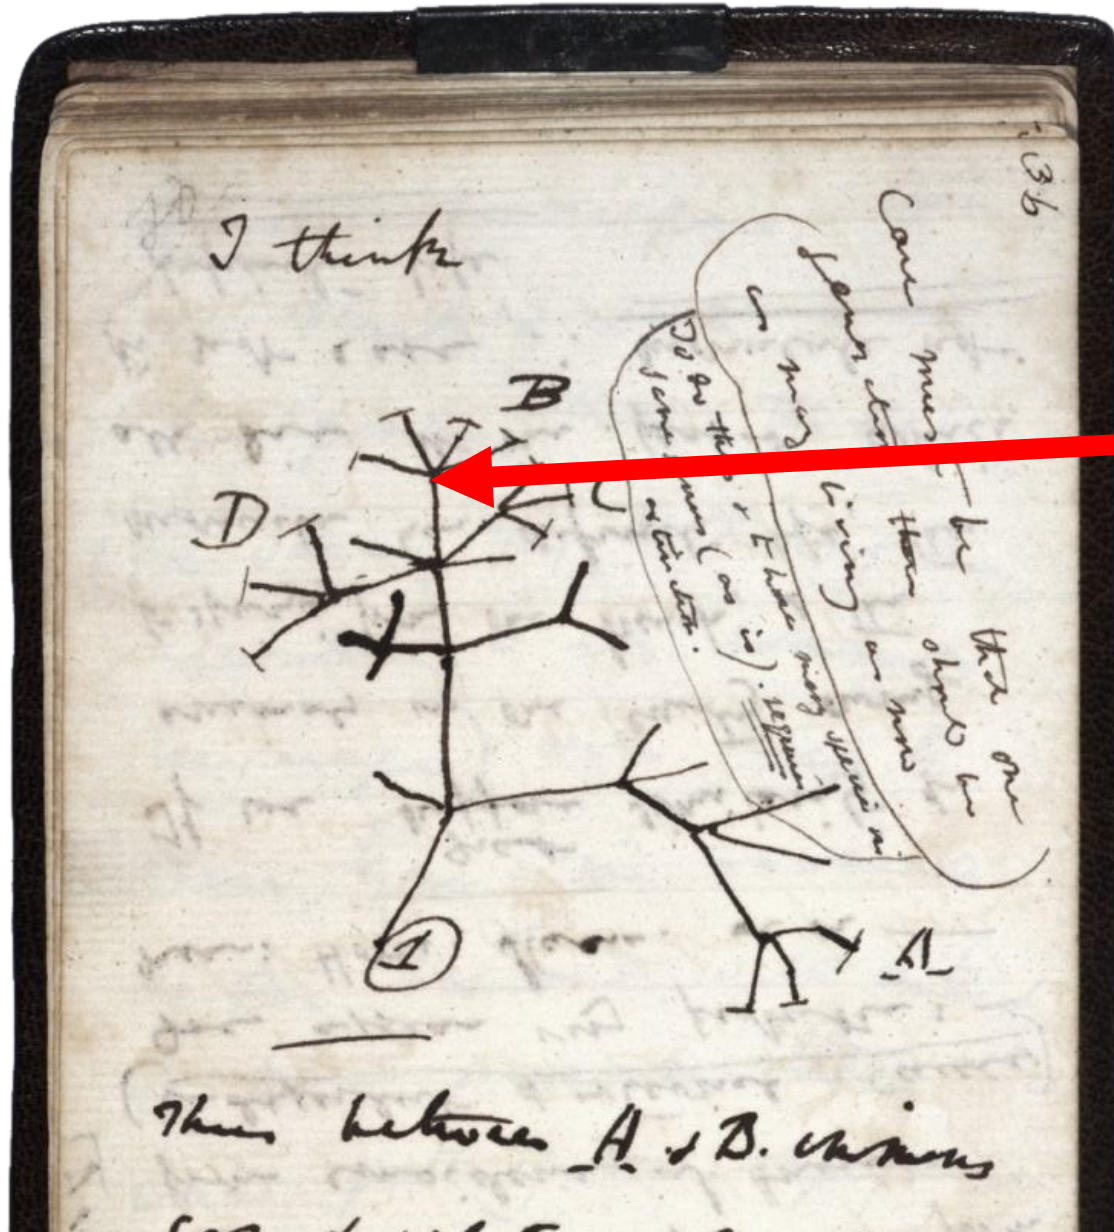 36
I think
Case must be that one
generation then should be
as many living as now
To do this & to have many species in
same genus (as is). requires
extinction.
B
C
D
A
1
Thus between A & B. immens